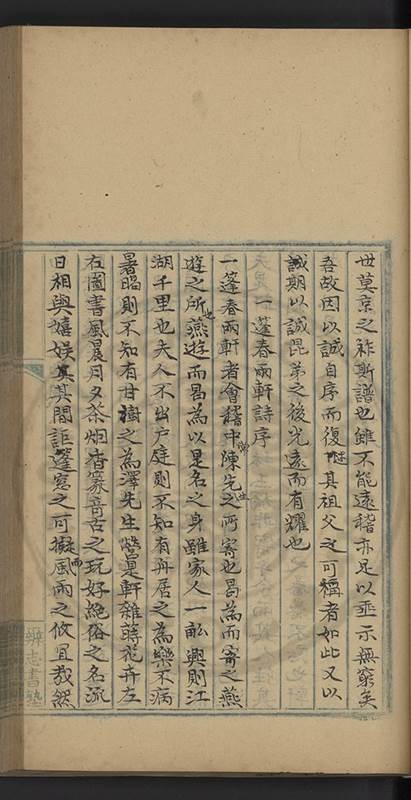 世莫京之祚斯譜也雖不能遠稽亦足以垂示無窮矣
吾故因以誠自序而復述其祖父之可稱者如此又以
誠期以誠毘弟之後光遠而有耀也
一蓬春雨軒詩序
一蓬春雨軒者會稽中常陳先生之所寄也曷為而寄之燕
遊之所也燕遊而曷為以是名之身雖家人一畝興則江
湖千里也夫人不出戶庭則不知有舟居之為樂不病
暑暍則不知有甘樹之為澤先生營是軒雜蒔花卉左
右圖書風晨月夕茶烟香篆奇古之玩好絶俗之名流
日相與嬉娱其間詎蓬窓之可擬風雨之攸宜哉然
辨志書塾